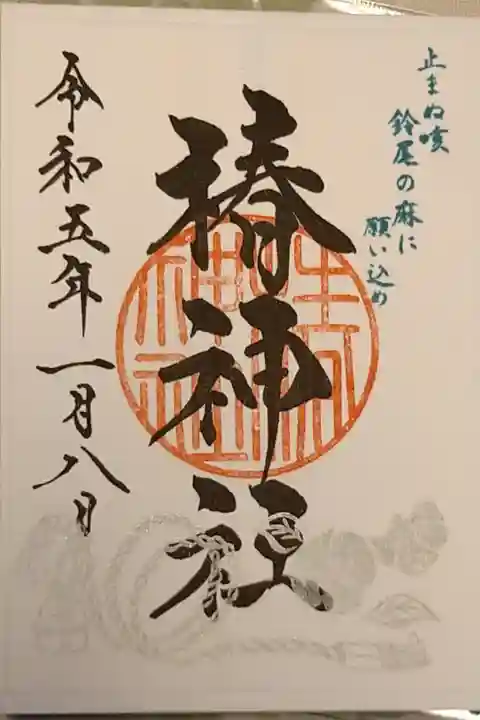 止まぬ咳
鈴尾の麻に
願い込め
椿神社
令和五年一月八日